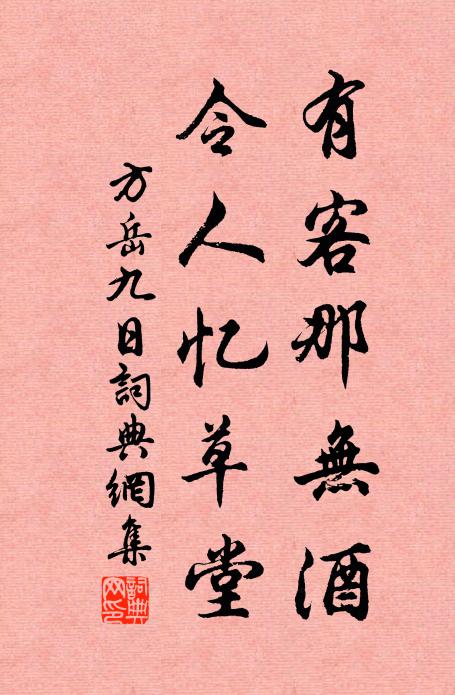 有客那無酒
令人忆草堂
方岳九日詞典網集
詞典網印